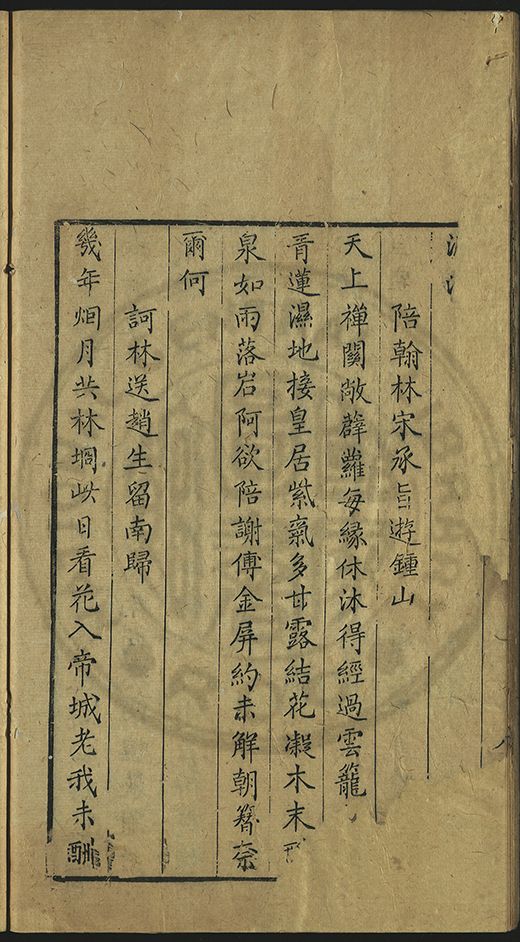 陪翰林宋承旨遊鍾山
天上禪關敞薜蘿每緣休沐得經過雲籠
青蓮濕地接皇居紫氣多甘露結花凝木末
泉如雨落岩阿欲陪謝傅金屏約未解朝簪奈
爾何
訶林送趙生留南歸
幾年烟月共林坰此日看花入帝城老我未酬